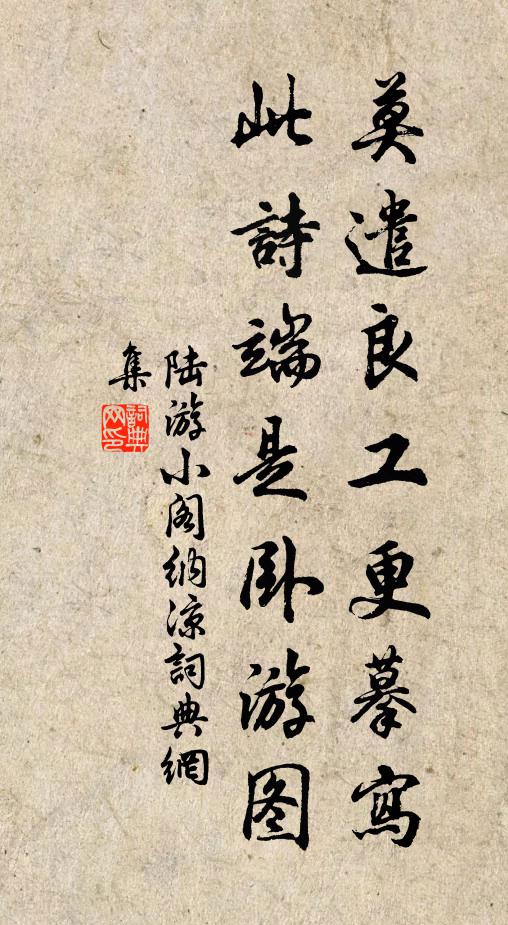 莫遣良工更摹寫
此詩端是卧游图
陆游小阁纳凉詞典網
集
詞典网印